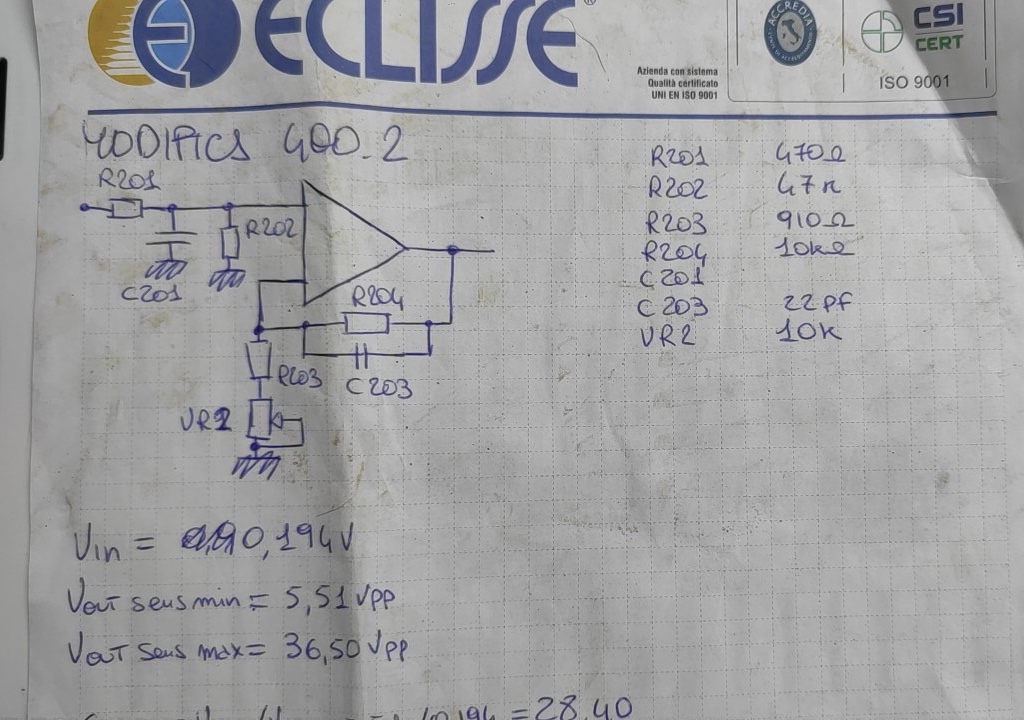 ECLISSE
Azienda con sistema
Qualità certificato
UNI EN ISO 9001
ACCREDIA
CSI
CERT
ISO 9001
MODIFICS 400.2
R201
R202
C201
R204
R203
C203
VR2
R201 470Ω
R202 47K
R203 910Ω
R204 10KΩ
C201
C203 22pf
VR2 10K
Vin = 0,194V
Vout sens min = 5,51 Vpp
Vout sens max = 36,50 Vpp
/0,194 = 28,40